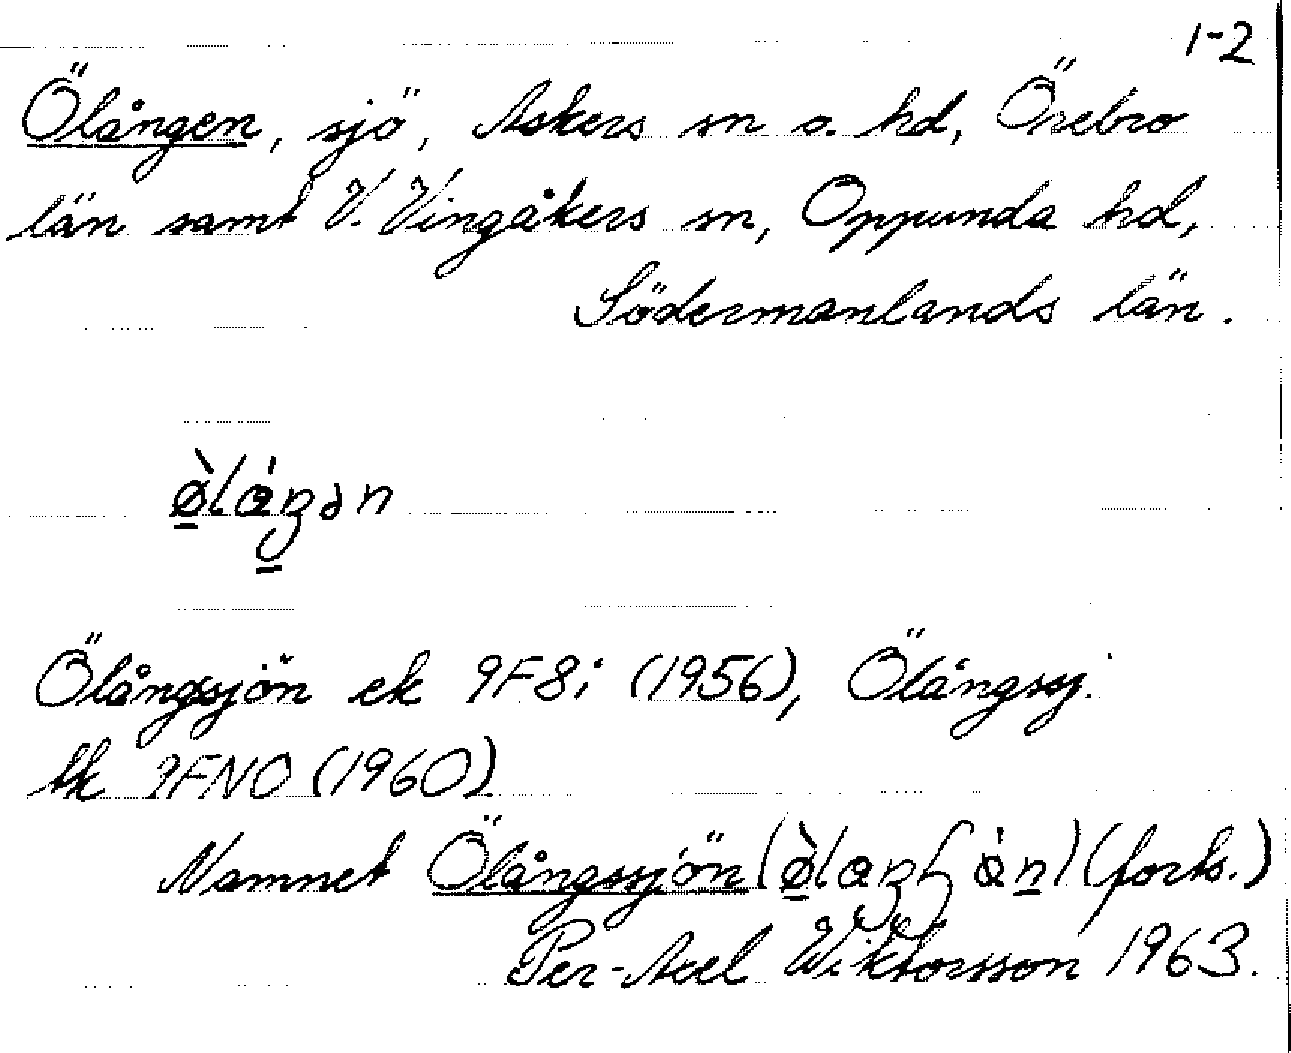 1-2
Ölången, sjö, Askers sn o. hd, Örebro
län samt V. Vingåkers sn, Oppunda hd,
Södermanlands län.
ø̀lȧŋən
Ölångsjön ek 9F8i (1956), Ölångssj.
tk 9FNO (1960)
Namnet Ölångssjön (forts.)
Per-Axel Wiktorsson 1963.